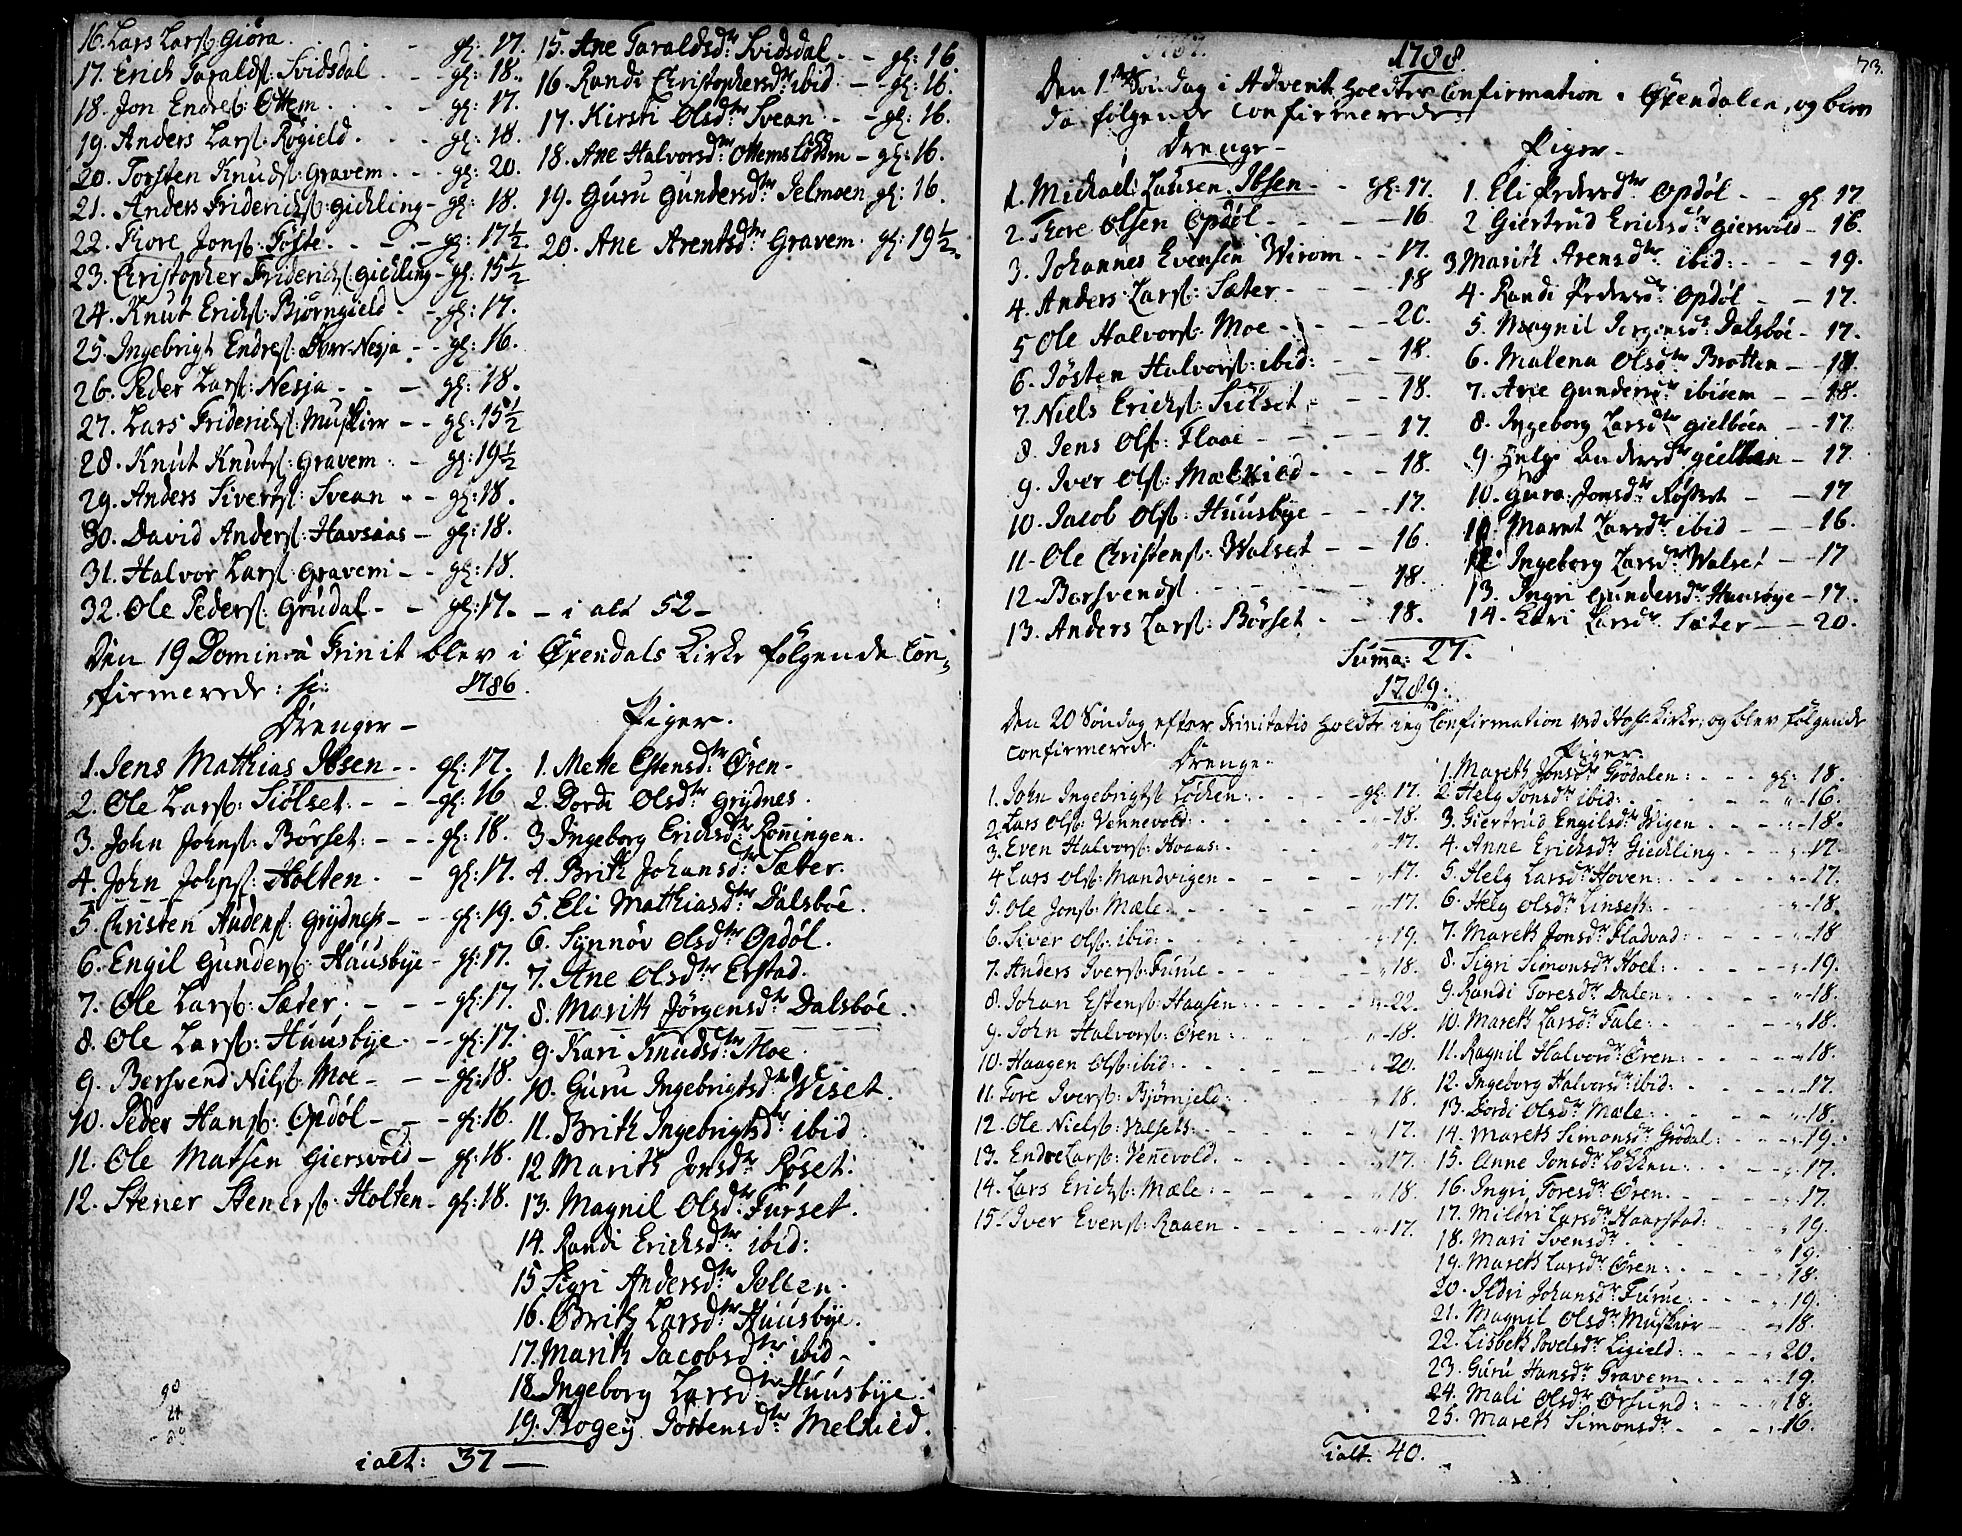 16. Lars Lars: Giöra - gl: 17.
17. Erich Taralds: Svidsdal - - gl: 18.
18. Jon Endres: Ottem - - gl: 17.
19. Anders Lars: Rögield - - gl: 18.
20. Torsten Knuds: Gravem - - gl: 20.
21. Anders Friderichs: Gickling - gl: 18.
22. Thore Jons: Tofte - - - gl: 17½
23. Christopher Friderichs: Gickling - gl: 15½
24. Knut Erichs: Biörngield - - gl: 17.
25. Ingebrigt Endres: Nesja - - gl: 16.
26. Peder Lars: Nesja - - - gl: 18.
27. Lars Friderichs: Muskier - - gl: 15½
28. Knut Knuts: Gravem - gl: 19½
29. Anders Siverts: Svean - - gl: 18.
30. David Anders: Havsaas - gl: 18.
31. Halvor Lars: Gravem - - gl: 18.
32. Ole Peders: Grudal - - gl: 17. - i alt 52 -
15. Ane Taraldsdtr Svidsdal - - gl: 16
16. Randi Christophersdtr ibid - - gl: 16.
17. Kirsti Olsdtr Svean - - gl: 16.
18. Ane Halvorsdtr Ottemslökken - gl: 16.
19. Guru Gundersdtr Jelmoen gl: 16.
20. Ane Arentsdtr Gravem gl: 19½
Den 19 Domin: a Trinit blev i Öxendals Kirke følgende Con-
firmerede: sc: 1786.
Drenger -
1. Jens Mathias Ibsen - - gl: 17.
2. Ole Lars: Siölset - - - gl: 16
3. John Johns: Börset - - - gl: 18.
4. John Johns: Holten - - gl: 17.
5. Christen Anders: Grydness - - - gl: 19.
6. Engil Gunders: Huusbye - gl: 17.
7. Ole Lars: Sæter - - - gl: 17.
8. Ole Lars: Huusbye - - gl: 17.
9. Bersvend Nils: Moe - - - gl: 18.
10. Peder Hans: Opdöl - - - gl: 16
11. Ole Matsen Giersvold - gl: 18.
12. Stener Steners: Holten - gl: 18.
Piger.
1. Mette Estensdtr Ören -
2. Dordi Olsdtr Grydnes.
3. Ingeborg Erichsdtr Rönningen.
4. Brith Johansdtr Sæter.
5. Eli Mathiasdtr Dalsböe.
6. Synnöv Olsdtr Opdöl.
7. Ane Olsdtr Erstad.
8. Marith Jörgensdtr Dalsböe.
9. Kari Knudsdtr Moe.
10. Guru Ingebrigtsdtr Wiset.
11. Brith Ingebrigtsdtr ibid
12. Marith Jonsdtr Röset.
13. Magnil Olsdtr Furset.
14. Randi Erichsdtr ibid:
15. Sigri Andersdtr Jollen.
16. Brith Larsdtr Huusbye.
17. Marith Jacobsdtr ibid -
18. Ingeborg Larsdtr Huusbye.
19. Rogey Jostensdtr Melkied.
ialt: 37 -
73.
1787. 1788
Den 1ste Söndag i Advent holdtes Confirmation i Öxendalen, og blev
da følgende Confirmerede:
Drenge -
1. Michael Lausen Ibsen - - gl: 17.
2. Thore Olsen Opdöl - - - 16
3. Johannes Evensen Wirom - - 17.
4. Anders Lars: Sæter - - - 18
5. Ole Halvors: Moe - - - 20.
6. Josten Halvors: ibid: - - 18.
7. Niels Erichs: Siölset - - 18.
8. Jens Ols: Flaae - - - 17.
9. Iver Ols: Mælkied - - - 18.
10. Jacob Ols: Huusbye - - - 17.
11. Ole Christens: Walset - - 16.
12. Bersvends - - - - 18.
13. Anders Lars: Börset - - 18.
Piger -
1. Eli Pedersdtr Opdöl - - gl 17
2. Giertrud Erichsdtr Giersvold - 16.
3. Marith Arensdtr ibid: - - - 19.
4. Randi Pedersdtr Opdöl - - 17.
5. Magnil Jörgensdtr Dalsböe - 17.
6. Malena Olsdtr Brotten - - 18.
7. Ane Gundersdtr ibidem - - 18.
8. Ingeborg Larsdtr Gielböen - - 17.
9. Helge Andersdtr - 17
10. Guru Jonsdtr Röset - - 17
11. Maret Larsdtr ibid - - - 16.
12. Ingeborg Larsdtr Walset - - 17
13. Ingri Gundersdtr Huusbye - 17.
14. Kari Larsdtr Sæter - - 20.
Summa: 27.
1789.
Den 20 Söndag efter Trinitatis holdte ieg Confirmation ved Hofs: Kirke, og blev følgende
Confirmerede.
Drenge.
1. John Ingebrigts Löcken: - - - gl: 17.
2. Lars Ols: Vennevold: - - - 18.
3. Even Halvors: Hoaas: - - - 17.
4. Lars Ols: Mandvigen - - - 17.
5. Ole Jons: Mæle - - - 17.
6. Siver Ols: ibid: - - - 19.
7. Anders Ivers: Furue - - - 18.
8. Johan Estens: Haasen: - - - 22.
9. John Halvors: Ören: - - - 18.
10. Haagen Ols: ibid: - - - 20.
11. Tore Ivers: Bjørnjeld: - - - 18.
12. Ole Niels: Valsets: - - - 17.
13. Endre Lars: Vennevold. - - - 17.
14. Lars Erichs: Mæle: - - - 18.
15. Iver Evens: Raaen - - - 17.
Piger
1. Mareth Jonsdr Grödalen: - - - gl: 18.
2. Helg Jonsdr ibid: - - - 16.
3. Giertrud Engilsdr Wigen - - - 18.
4. Anne Erichsdr Gickling - - - 17.
5. Helg Larsdr Hoven: - - - 17.
6. Helg Olsdr Linseth: - - - 18.
7. Mareth Jonsdr Fladvad: - - - 18
8. Sigri Simonsdr Hoel: - - - 19.
9. Randi Toresdr Dalen: - - - 18.
10. Mareth Larsdr Fale: - - - 18.
11. Ragnil Halvordr Ören: - - - 18.
12. Ingeborg Halvorsdr ibid: - - - 17.
13. Dordi Olsdr Mæle: - - - 18.
14. Mareth Simonsdr Grödal: - - - 19.
15. Anne Jonsdr Löcken: - - - 17.
16. Ingri Toresdr Ören. - - - 17.
17. Mildri Larsdr Haarstad: - - - 19.
18. Mari Svensdr - - - 19.
19. Mareth Larsdr Ören: - - - 18.
20. Ildri Johansdr Furue: - - - 19.
21. Magnil Olsdr Muskier - - 18.
22. Lisbeth Povelsdr Ligield: - - - 20.
23. Guru Hansdr Gravem - - - 19.
24. Mali Olsdr Örsund: - - - 18.
25. Mareth Simonsdr - - - 16.
ialt: 40.